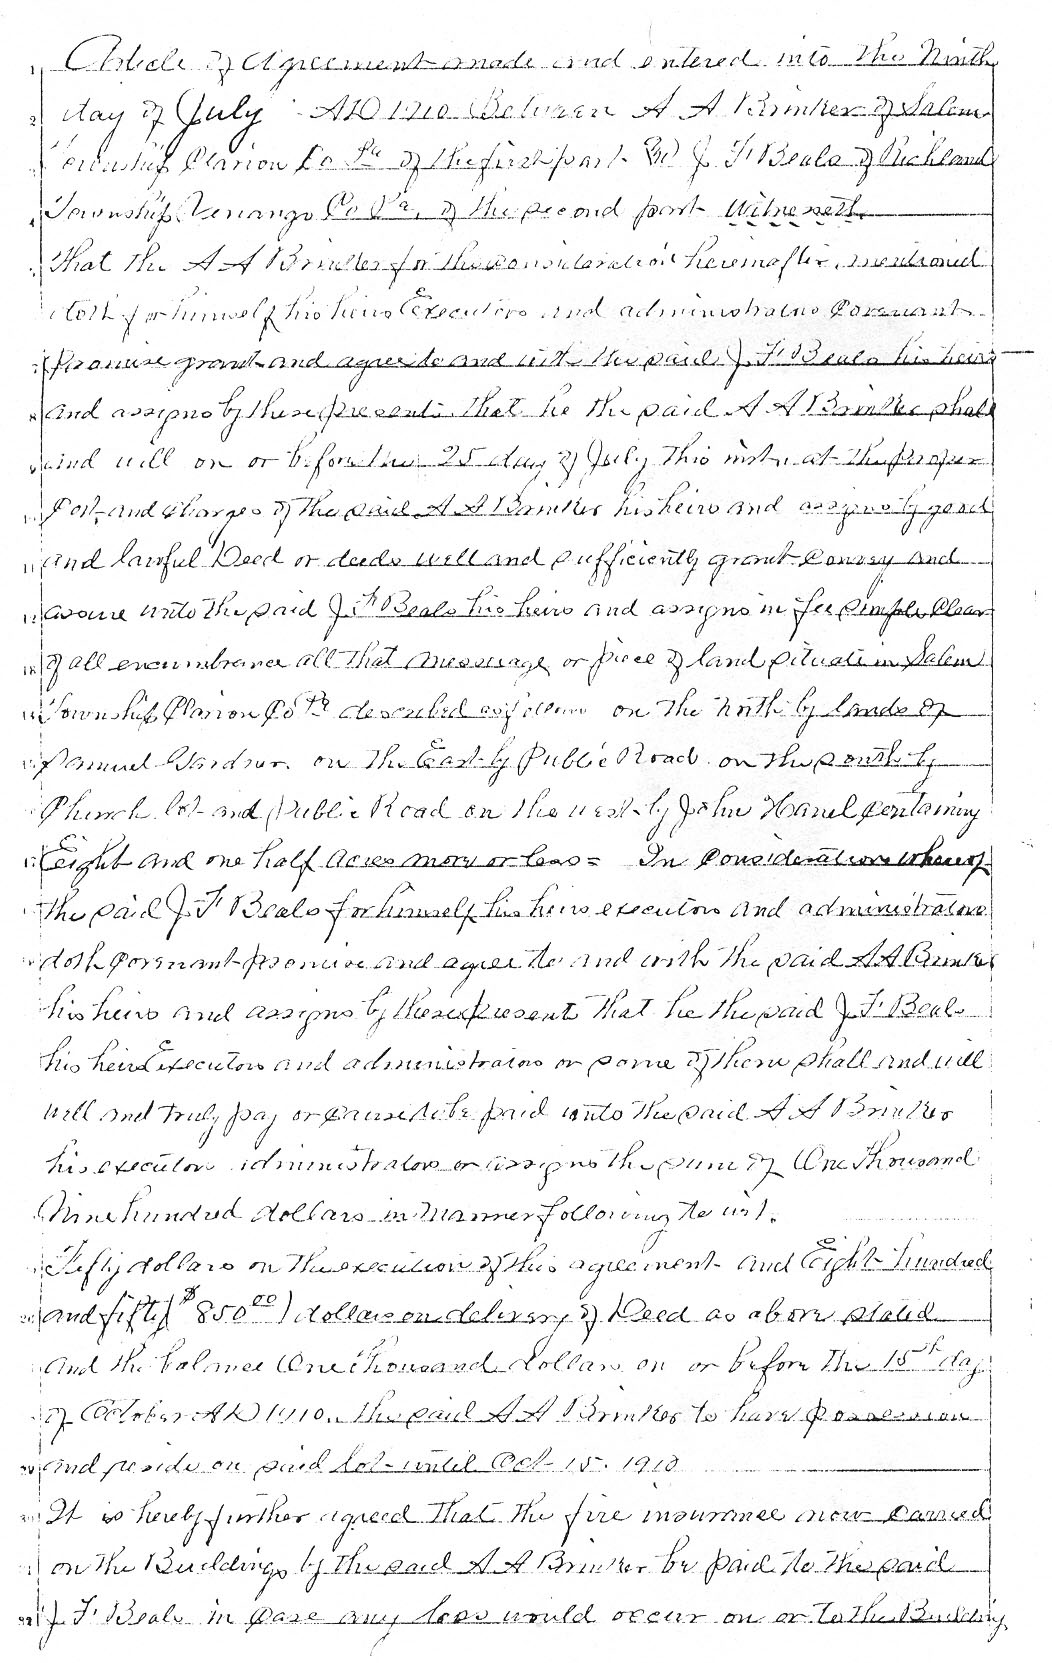 Article of Agreement made and entered into the Ninth
day of July AD 1910 Between A A Brinker of Salem
Township Clarion Co Pa of the first part And J. F Beals of Richland
Township Venango Co Pa. of the second part Witneseth
that the A A Brinker for the consideration hereinafter mentioned
doth for himself his heirs Executors and administrators Covenant
Promise grant and agree to and with the said J. F Beals his heirs
and assigns by these presents that he the said A A Brinker shall
and will on or before the 25 day of July this inst. at the proper
Cost and Charges of the said A A Brinker his heirs and assigns by good
and lawful Deed or deeds well and sufficiently grant Convey and
assure unto the said J. F Beals his heirs and assigns in fee simple Clear
of all encumbrance all that messuage or piece of land situate in Salem
Township Clarion Co Pa described as follows on the North by lands of
Samuel Gardner. on the East by Public Road on the south by
Church lot and Public Road on the west by John Containing
Eight and one half Acres more or less = In Consideration whereof
the said J. F Beals for himself his heirs executors and administrators
doth Covenant promise and agree to and with the said A A Brinker
his heirs and assigns by these present that he the said J. F Beals
his heirs Executors and administrators or some of them shall and will
well and truly pay or cause to be paid unto the said A A Brinker
his executors administrators or assigns the sum of One thousand
Nine hundred dollars in manner following to wit.
Fifty dollars on the execution of this agreement and Eight hundred
and fifty ($850.00) dollars on delivery of Deed as above stated
And the balance One thousand dollars on or before the 15th day
of October AD 1910. the said A A Brinker to have possession
and reside on said lot until Oct 15. 1910
It is hereby further agreed that the fire insurance now carried
on the Buildings by the said A A Brinker be paid to the said
J. F Beals in Case any loss would occur on or to the Building